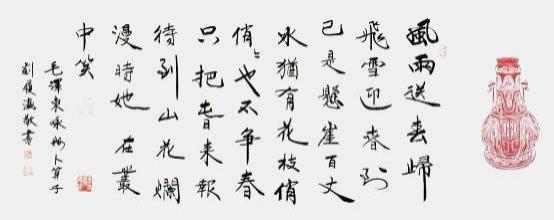 風雨送春歸
飛雪迎春到
已是懸崖百丈
冰猶有花枝俏
俏也不爭春
只把春來報
待到山花爛
漫時她在叢
中笑
毛澤東詠梅卜算子
劉俊敬書